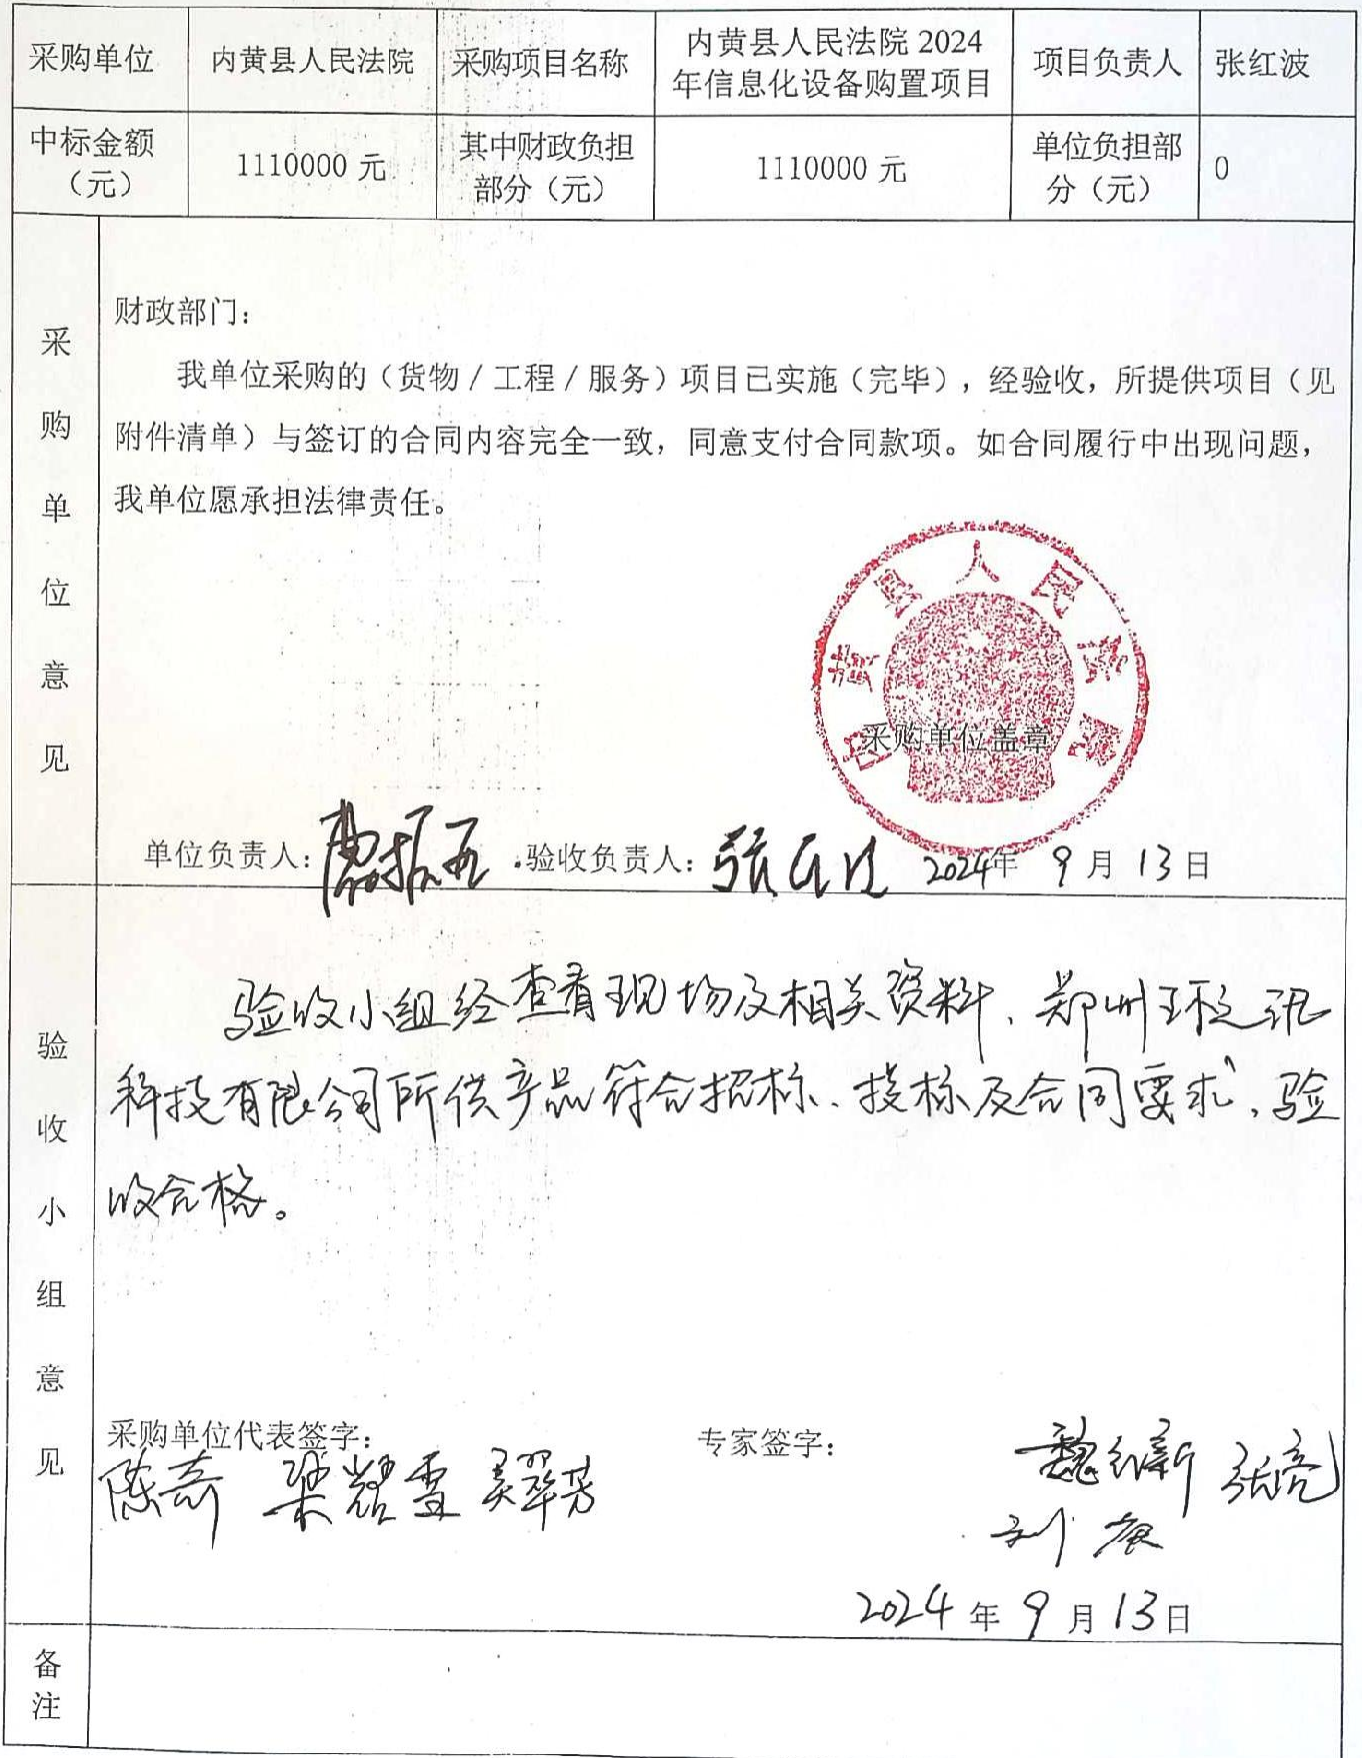 采购单位 内黄县人民法院 采购项目名称 内黄县人民法院 2024 年信息化设备购置项目 项目负责人 张红波
中标金额（元） 1110000 元 其中财政负担部分（元） 1110000 元 单位负担部分（元） 0
采购单位意见
财政部门：
我单位采购的（货物／工程／服务）项目已实施（完毕），经验收，所提供项目（见
附件清单）与签订的合同内容完全一致，同意支付合同款项。如合同履行中出现问题，
我单位愿承担法律责任。
内黄县人民法院
采购单位盖章
单位负责人： 验收负责人： 2024年 9 月 13 日
验收小组意见
验收小组经查看现场及相关资料、郑州
科技有限公司所供产品符合招标、投标及合同要求，验
收合格。
采购单位代表签字： 专家签字：
吴翠芳 魏维新 张亮
2024 年 9 月 13 日
备注